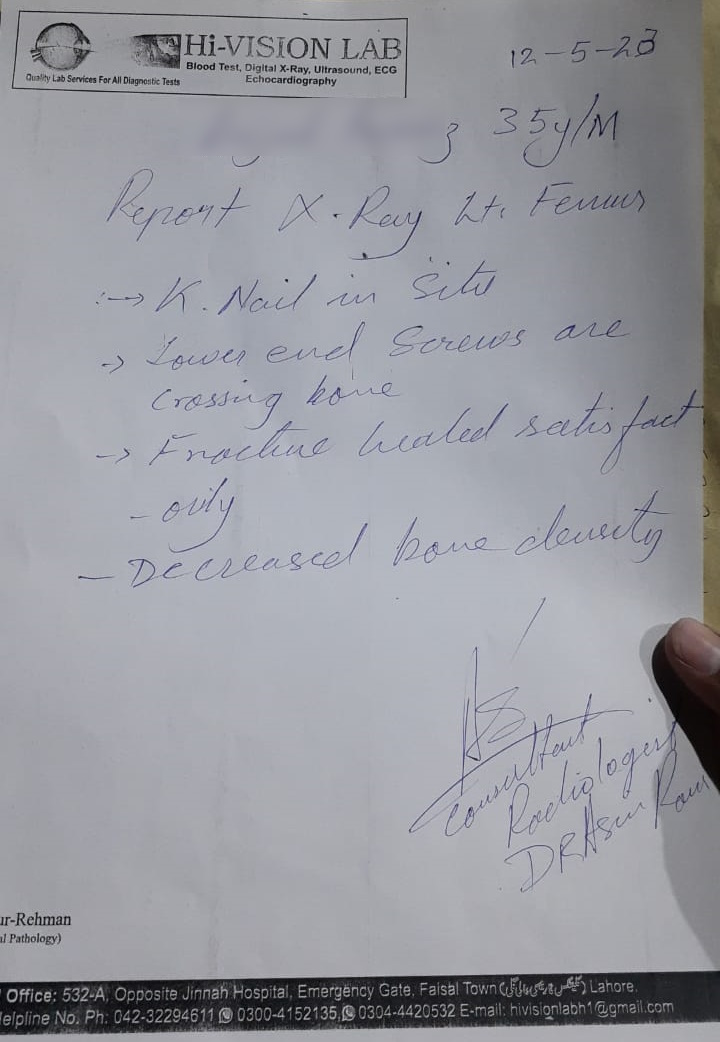 Hi-VISION LAB
Blood Test, Digital X-Ray, Ultrasound, ECG
Quality Lab Services For All Diagnostic Tests
Echocardiography
12-5-23
35y/M
Report X-Ray Lt. Femur
:→ K. Nail in Site
→ Lower end Screws are
crossing bone
→ Fracture healed satisfact
-orily
- Decreased bone density
Consultant
Radiologist
DR Asim
ur-Rehman
al Pathology)
Office: 532-A, Opposite Jinnah Hospital, Emergency Gate, Faisal Town Lahore.
Helpline No. Ph: 042-32294611 0300-4152135, 0304-4420532 E-mail: hivisionlabh1@gmail.com